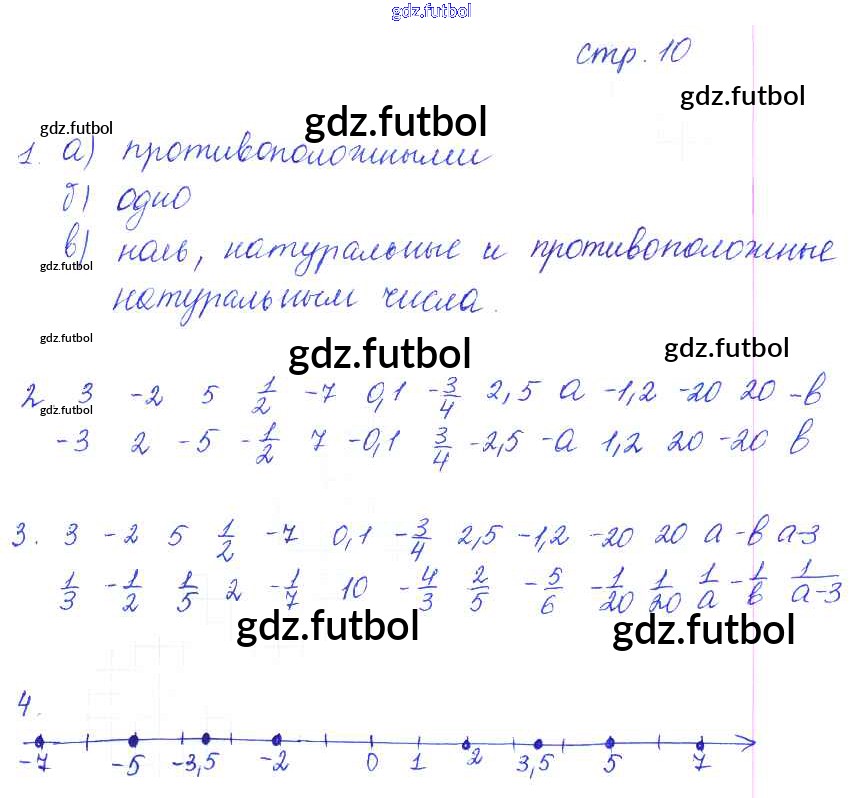 gdz.futbol
стр. 10
gdz.futbol
gdz.futbol
gdz.futbol
1. а) противоположными
б) одно
в) ноль, натуральные и противоположные
gdz.futbol
натуральным числа.
gdz.futbol
gdz.futbol
gdz.futbol
2 3 -2 5 1/2 -7 0,1 -3/4 2,5 а -1,2 -20 20 -в
gdz.futbol
-3 2 -5 -1/2 7 -0,1 3/4 -2,5 -а 1,2 20 -20 в
3. 3 -2 5 1/2 -7 0,1 -3/4 2,5 -1,2 -20 20 а -в а-3
1/3 -1/2 1/5 2 -1/7 10 -4/3 2/5 -5/6 -1/20 1/20 1/а -1/в 1/а-3
gdz.futbol
gdz.futbol
4.
-7 -5 -3,5 -2 0 1 2 3,5 5 7